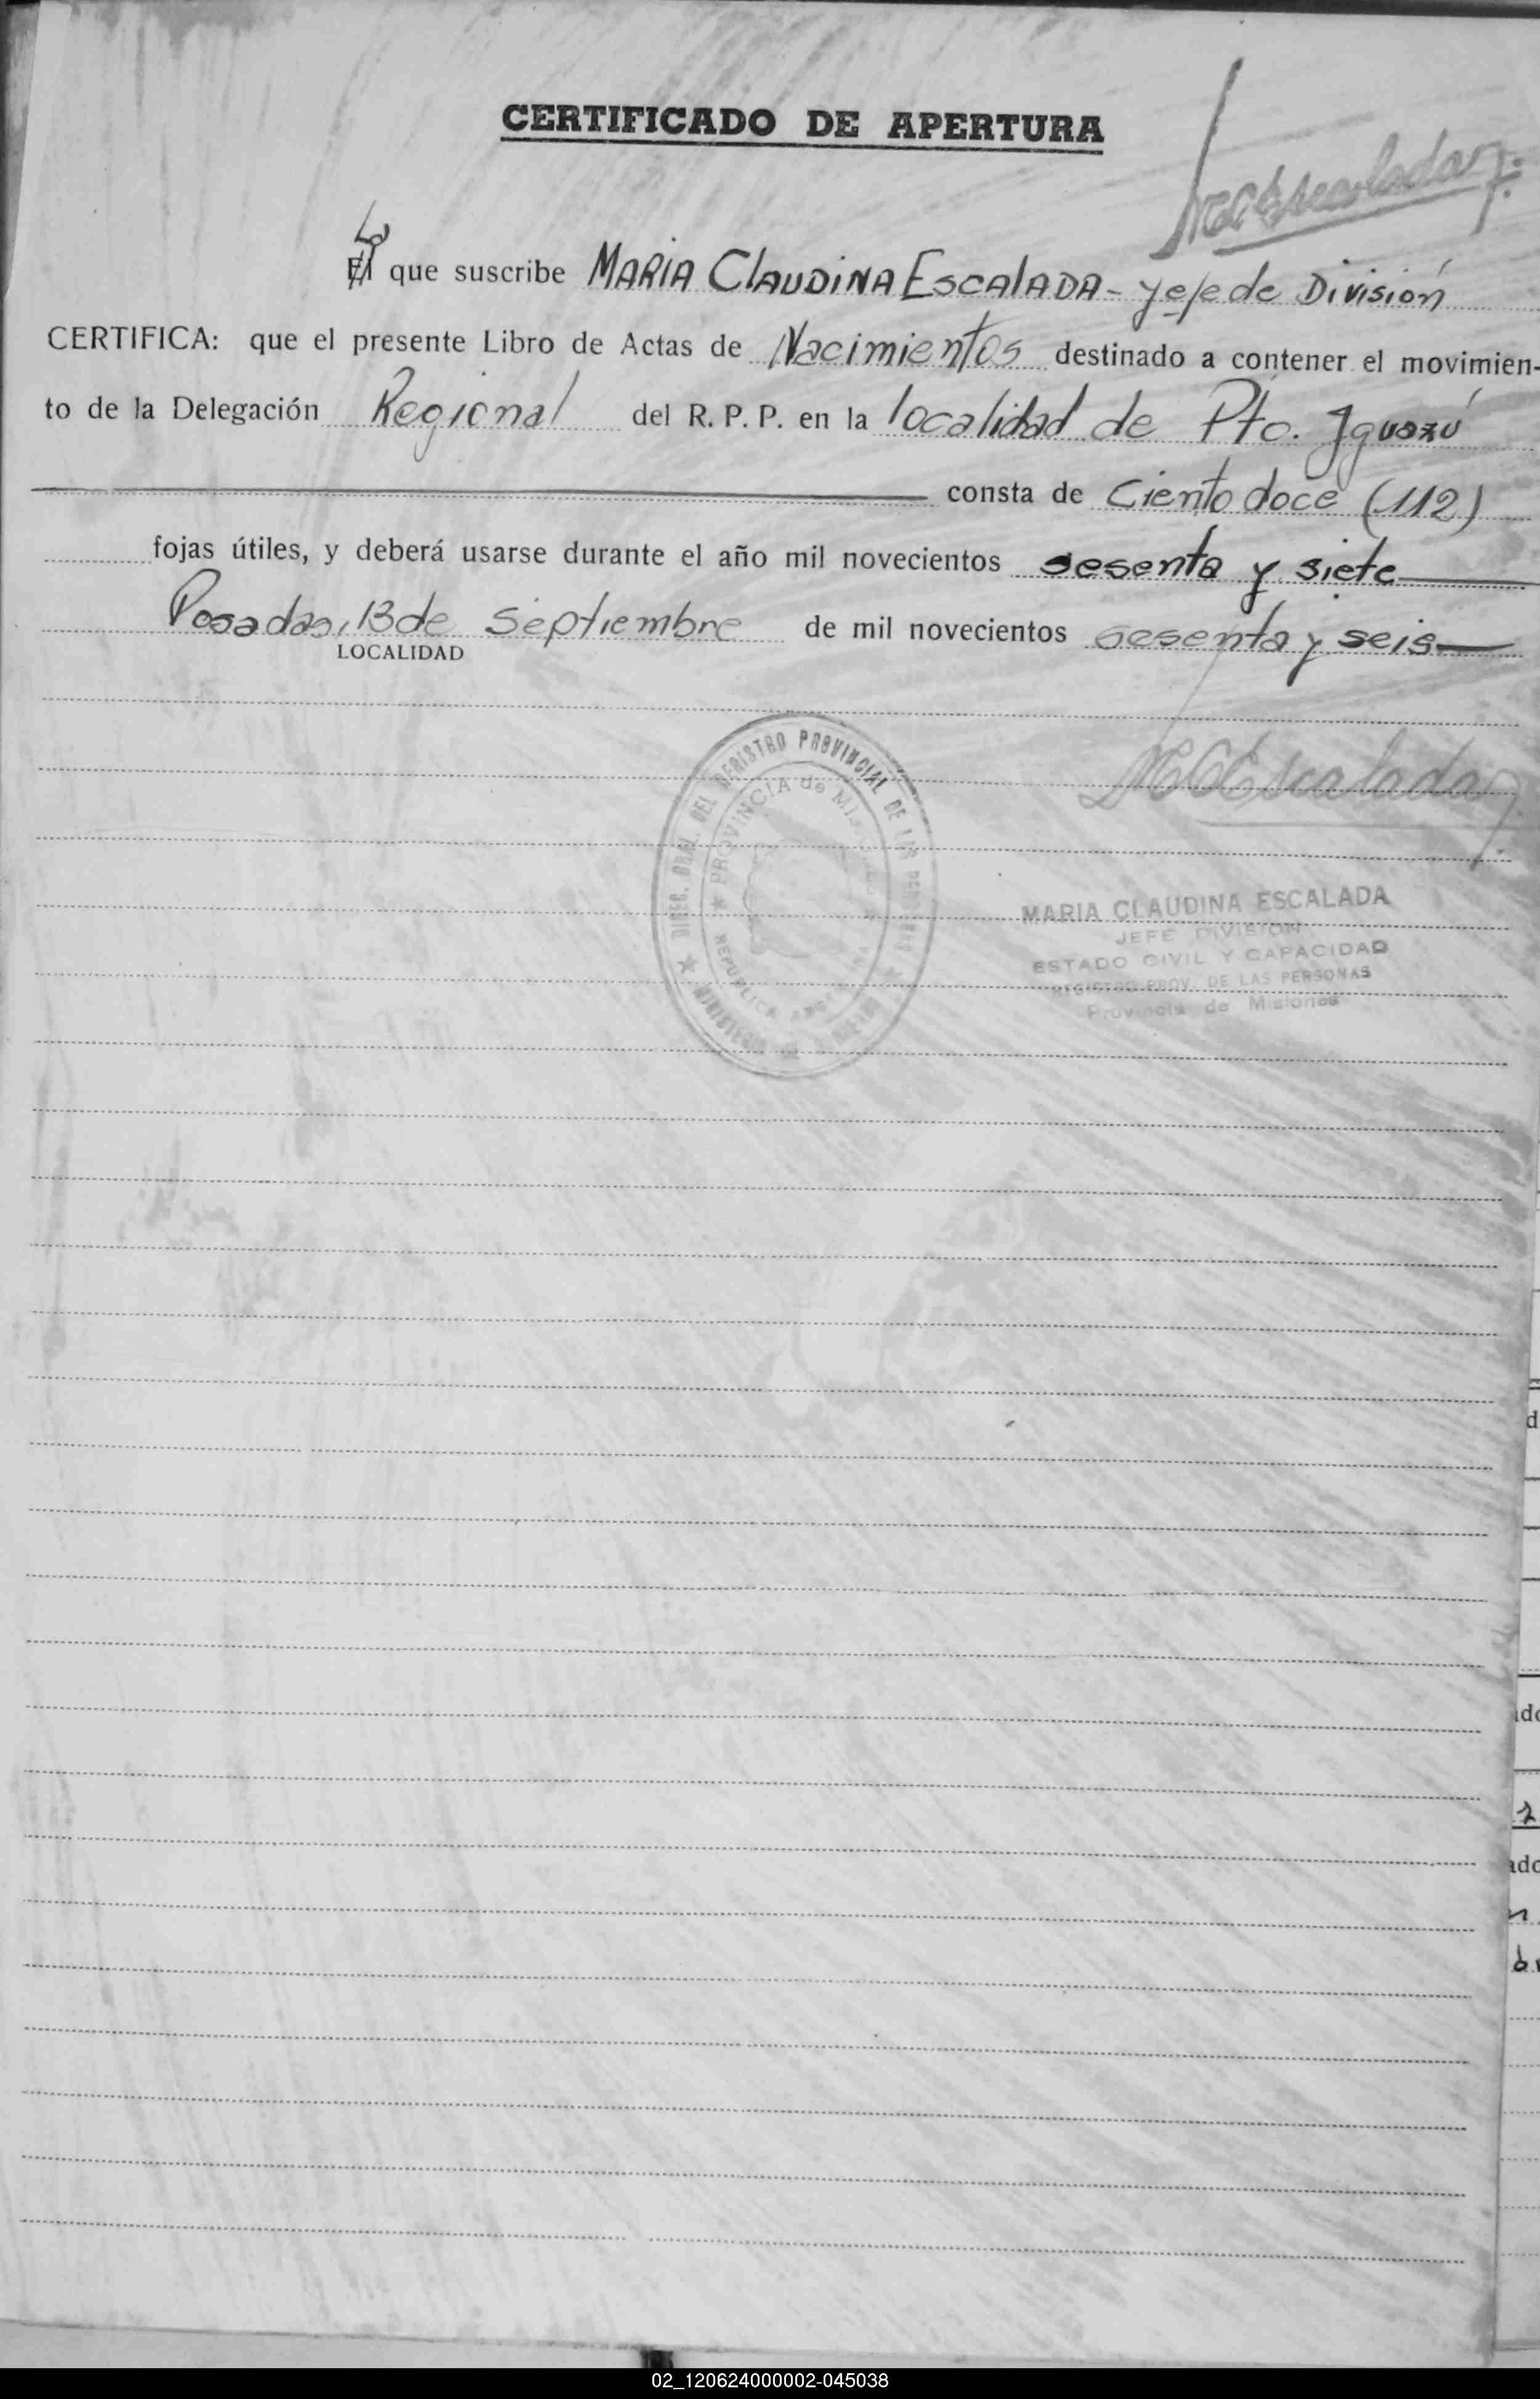 CERTIFICADO DE APERTURA
MCEscalada
La
El que suscribe MARIA CLAUDINA ESCALADA - Jefe de División
CERTIFICA: que el presente Libro de Actas de Nacimientos destinado a contener el movimien-
to de la Delegación Regional del R. P. P. en la localidad de Pto. Iguazú
consta de Ciento doce (112)
fojas útiles, y deberá usarse durante el año mil novecientos sesenta y siete
Posadas, 13 de Septiembre de mil novecientos sesenta y seis
LOCALIDAD
DIREC. GRAL. DEL REGISTRO PROVINCIAL DE LAS PERSONAS
PROVINCIA de MISIONES
REPUBLICA ARGENTINA
MINISTERIO DE
MCEscalada
MARIA CLAUDINA ESCALADA
JEFE DIVISION
ESTADO CIVIL Y CAPACIDAD
REGISTRO PROV. DE LAS PERSONAS
Provincia de Misiones
d
ado
ado
02_120624000002-045038